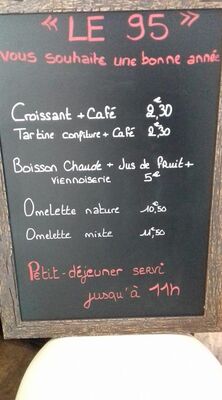 " LE 95 "
vous souhaite une bonne année
Croissant + Café 2,30
Tartine confiture + Café 2€30
Boisson Chaude + Jus de Fruit +
Viennoiserie 5€
Omelette nature 10€50
Omelette mixte 11€50
Petit-déjeuner servi
jusqu'à 11h